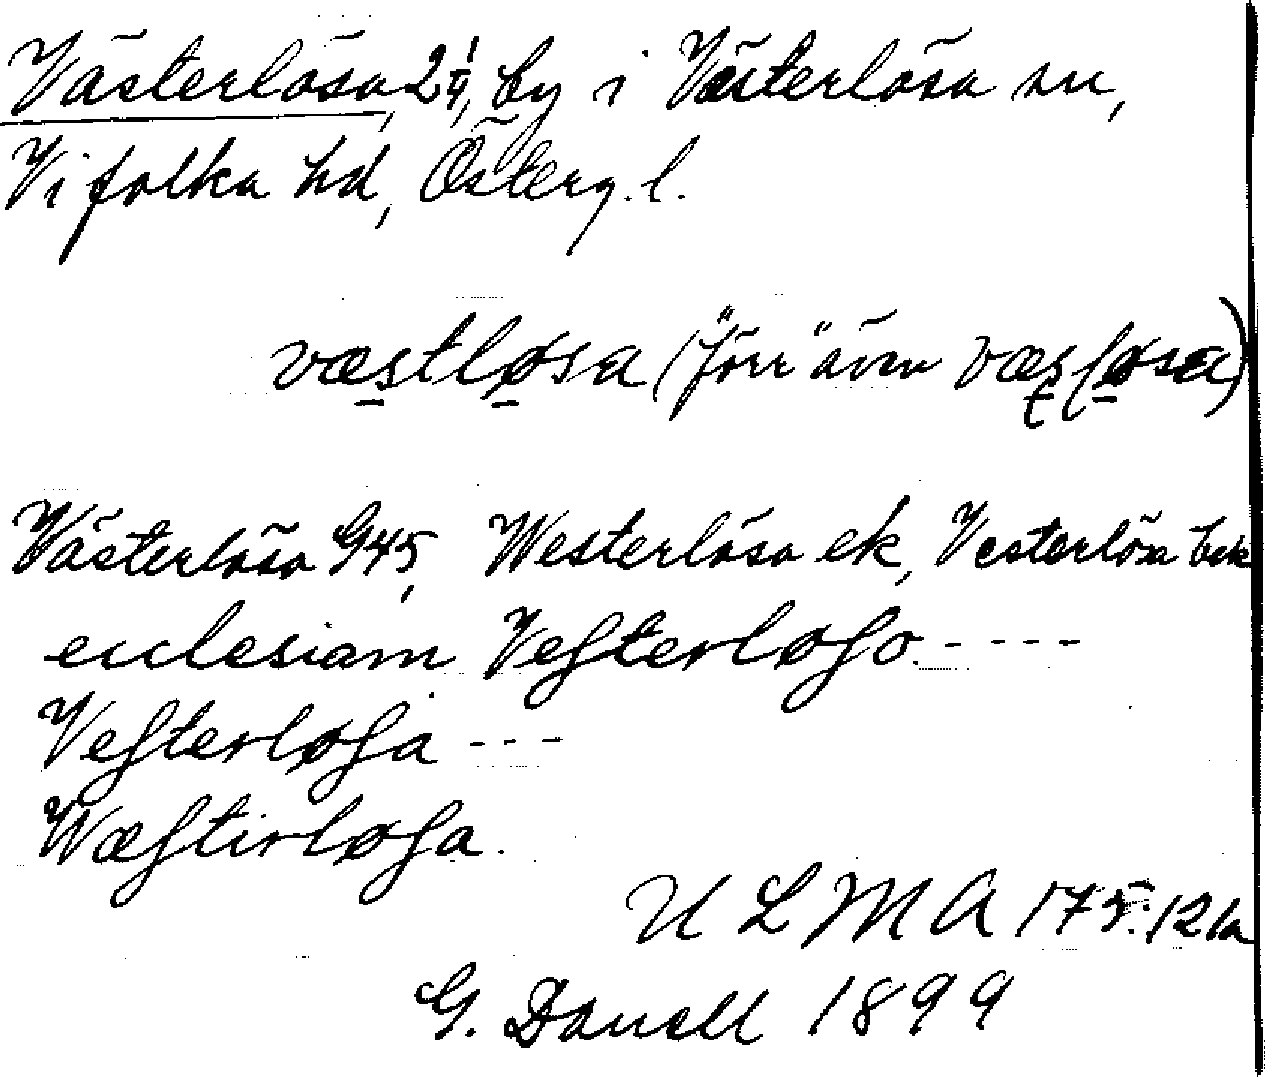 Västerlösa, 2 1/4, by i Västerlösa sn,
Vifolka hd, Österg. l.
væstløsa (förr även væsløsa)
Västerlösa G45, Westerlösa ek, Vesterlösa bek
ecclesiam Veſterløſo - - - -
Veſterløſa - - -
Wæſtirløſa.
U L M A 175:121a
G. Danell 1899